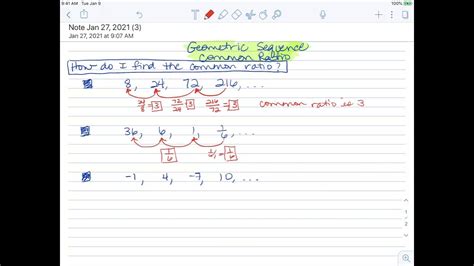 9:41 AM Tue Jan 9
100%
Note Jan 27, 2021 (3)
Jan 27, 2021 at 9:07 AM
Geometric Sequence
Common Ratio
How do I find the common ratio?
8, 24, 72, 216, ...
24/8 = 3 72/24 = 3 216/72 = 3 common ratio is 3
36, 6, 1, 1/6, ...
1/6 1/6/1 = 1/6
-1, 4, -7, 10, ...